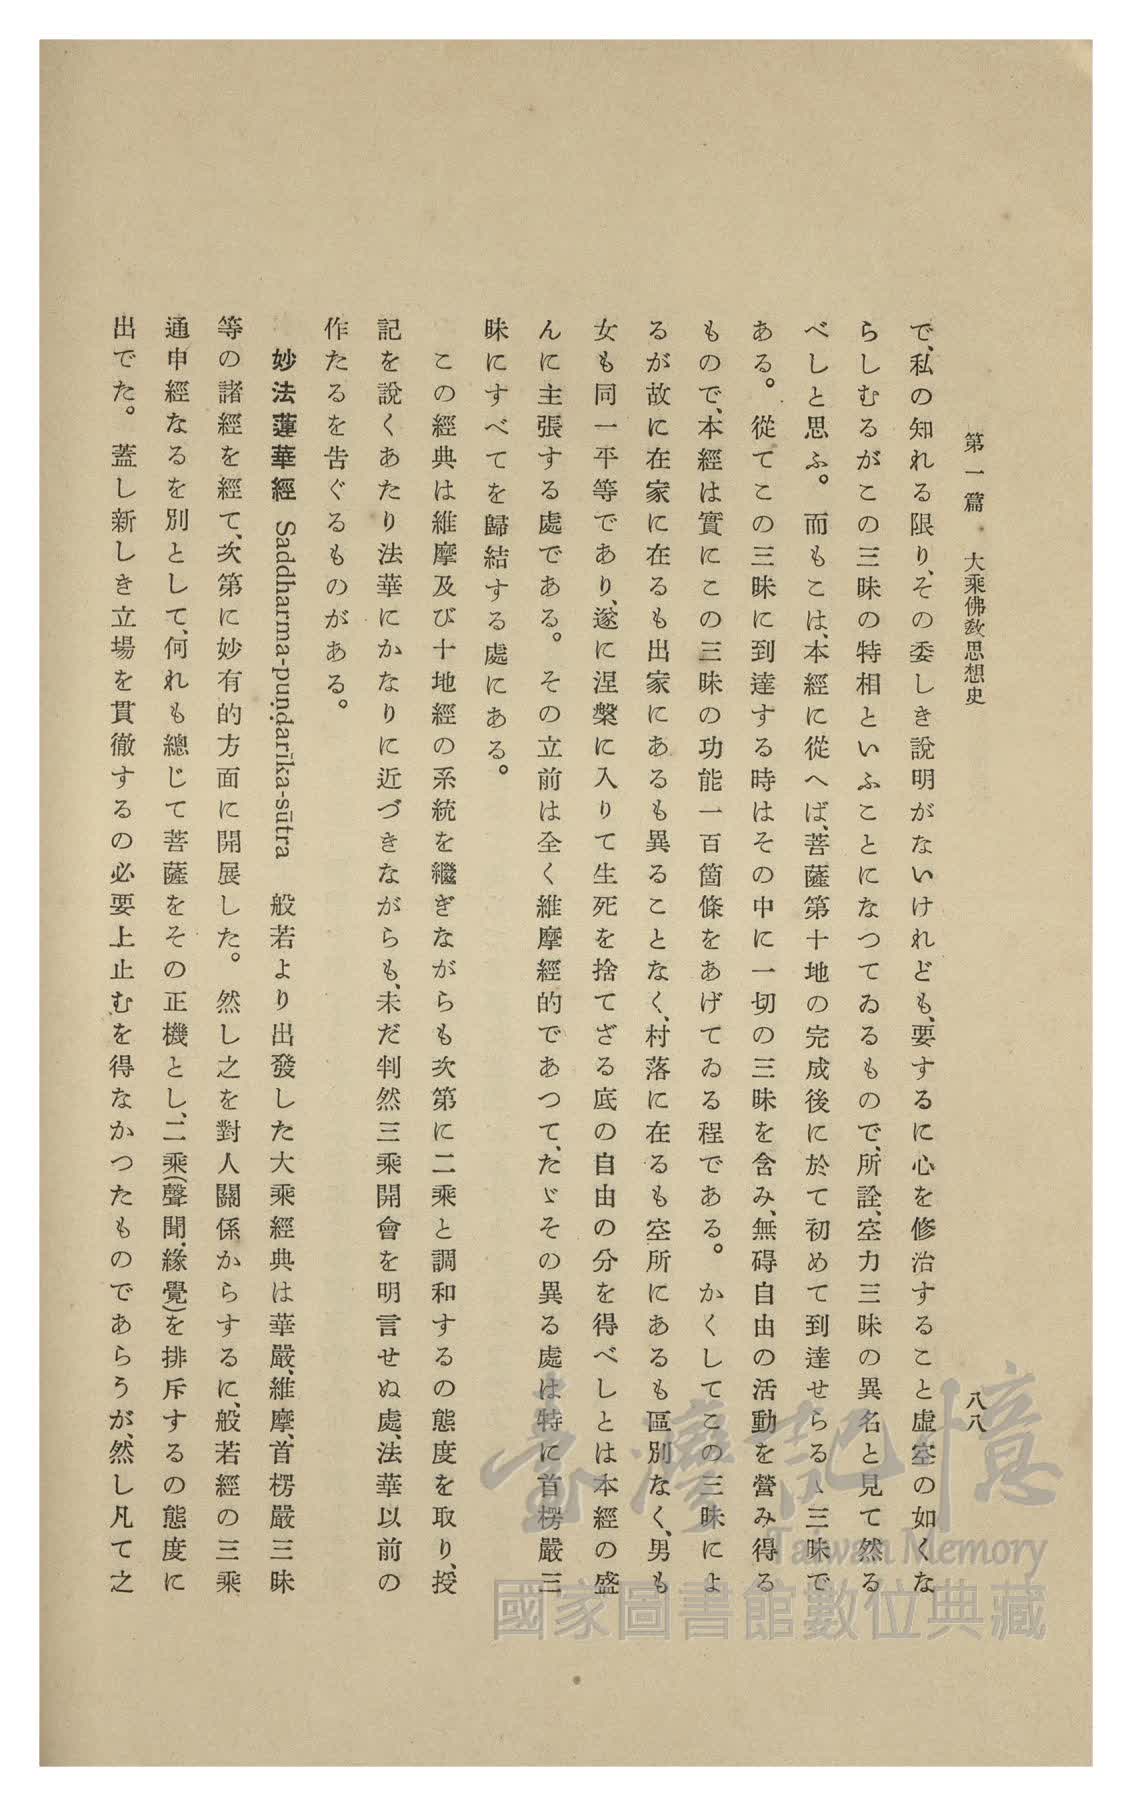 第一篇　大乘佛教思想史
八八
で、私の知れる限り、その委しき說明がないけれども、要するに心を修治すること虛空の如くな
らしむるがこの三昧の特相といふことになつてゐるもので、所詮、空力三昧の異名と見て然る
べしと思ふ。而もこは、本經に從へば、菩薩第十地の完成後に於て初めて到達せらるゝ三昧で
ある。從てこの三昧に到達する時はその中に一切の三昧を含み、無碍自由の活動を營み得る
もので、本經は實にこの三昧の功能一百箇條をあげてゐる程である。かくしてこの三昧によ
るが故に在家に在るも出家にあるも異ることなく、村落に在るも空所にあるも區別なく、男も
女も同一平等であり、遂に涅槃に入りて生死を捨てざる底の自由の分を得べしとは本經の盛
んに主張する處である。その立前は全く維摩經的であつて、たゞその異る處は特に首楞嚴三
昧にすべてを歸結する處にある。
この經典は維摩及び十地經の系統を繼ぎながらも次第に二乘と調和するの態度を取り、授
記を說くあたり法華にかなりに近づきながらも、未だ判然三乘開會を明言せぬ處、法華以前の
作たるを吿ぐるものがある。
妙法蓮華經 Saddharma-puṇḍarīka-sūtra 般若より出發した大乘經典は華嚴、維摩、首楞嚴三昧
等の諸經を經て、次第に妙有的方面に開展した。然し之を對人關係からするに、般若經の三乘
通申經なるを別として、何れも總じて菩薩をその正機とし、二乘(聲聞、緣覺)を排斥するの態度に
出でた。蓋し新しき立場を貫徹するの必要上止むを得なかつたものであらうが、然し凡て之
臺灣記憶
Taiwan Memory
國家圖書館數位典藏